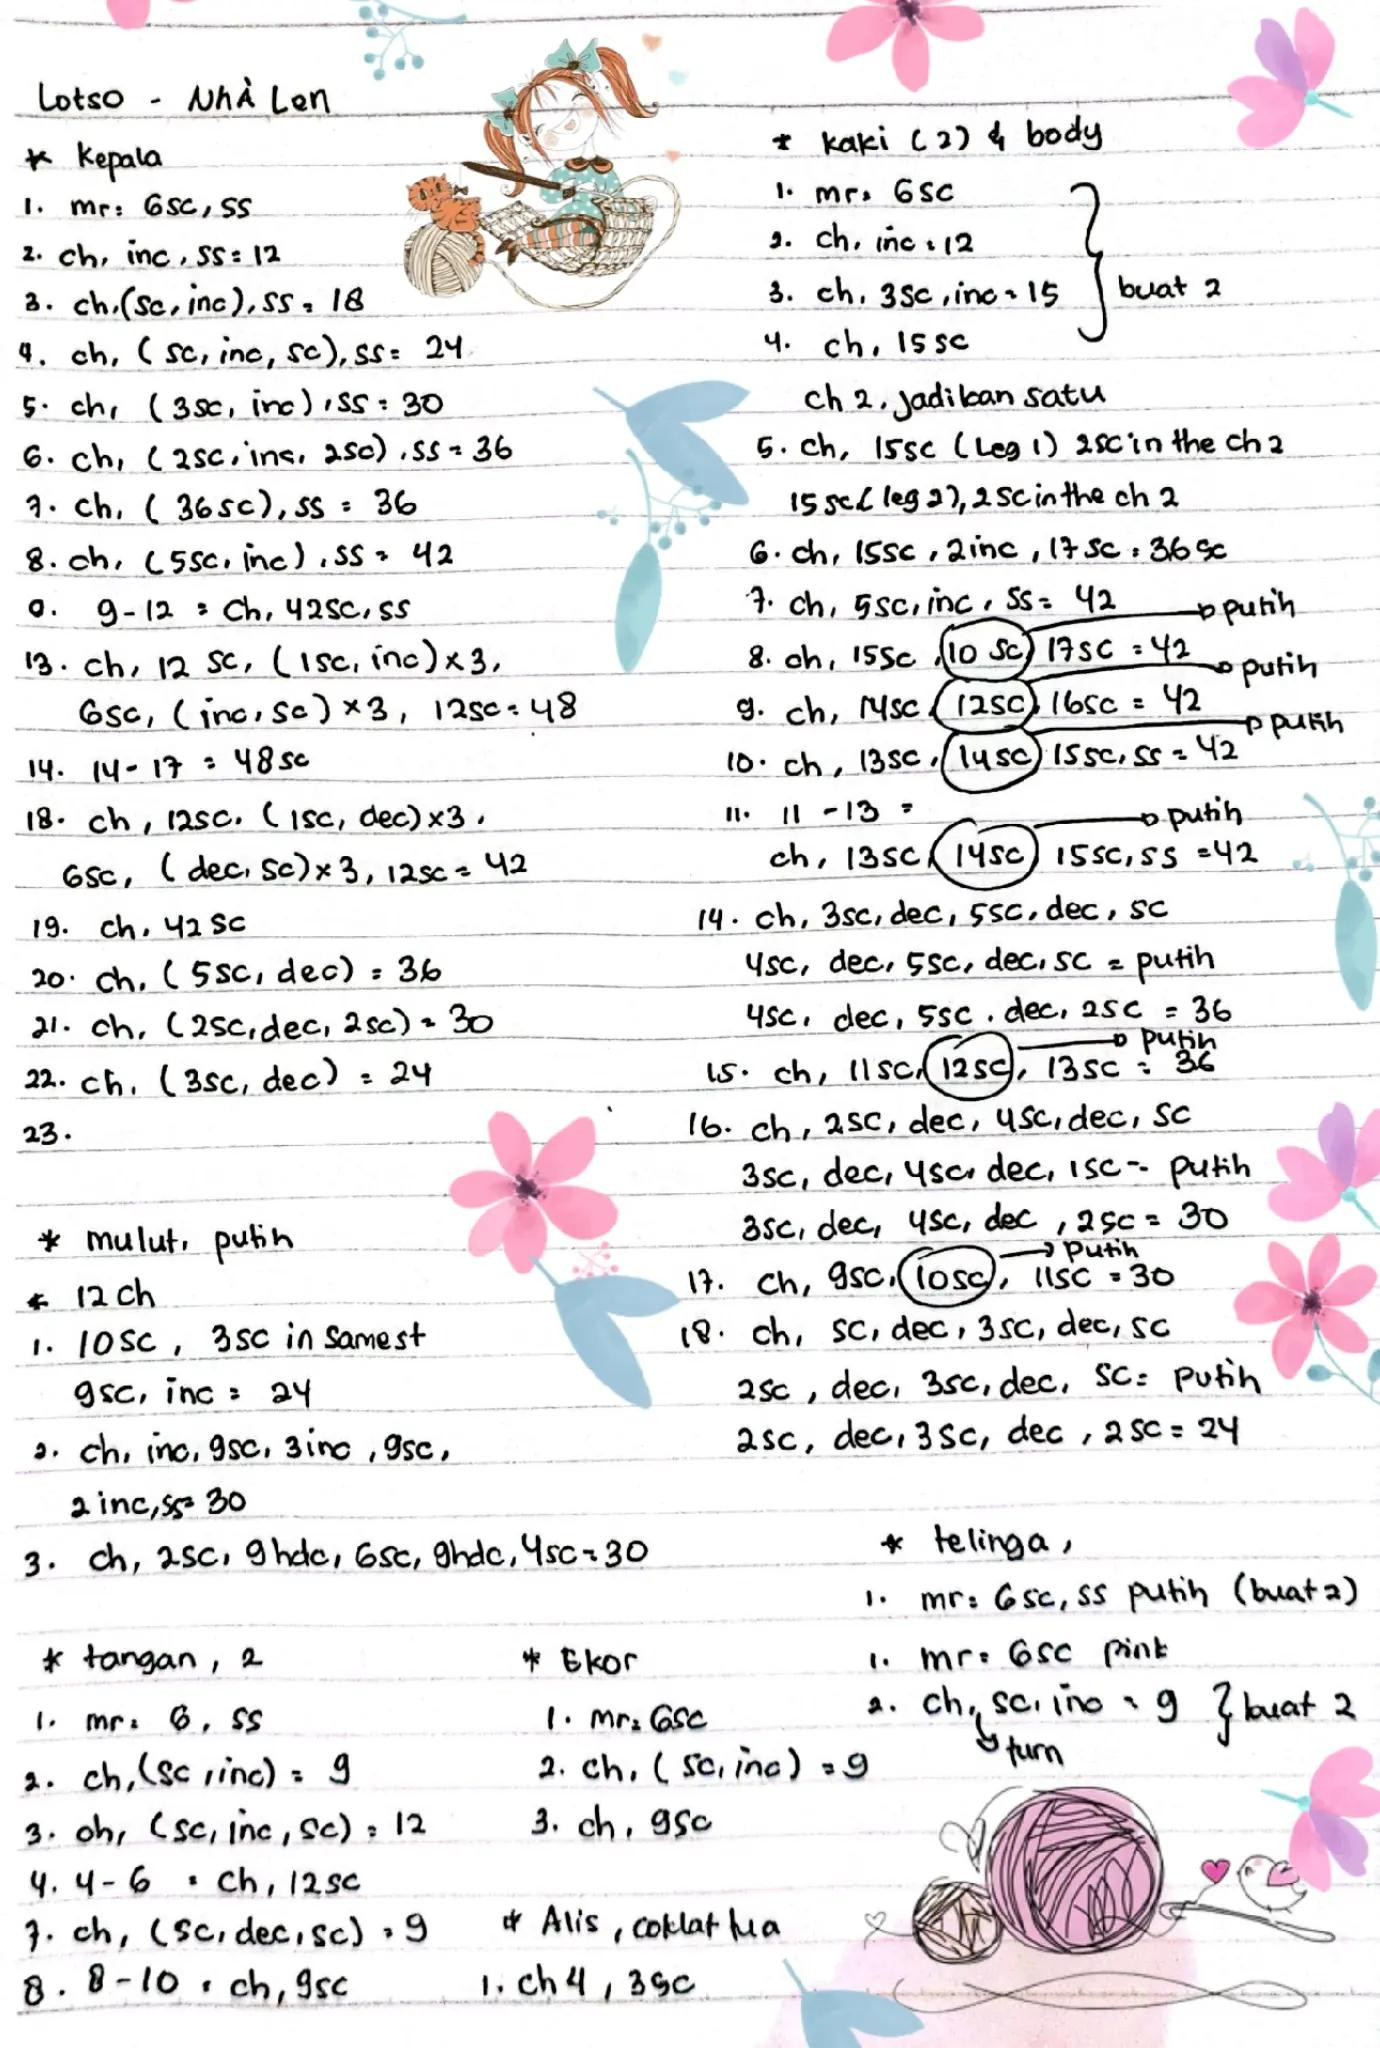 Lotso - NHÀ Len
* Kepala
1. mr: 6sc, ss
2. ch, inc, ss: 12
3. ch,(sc, inc), ss = 18
4. ch, (sc, inc, sc), ss = 24
5. ch, (3sc, inc), ss: 30
6. ch, (2sc, inc, 2sc), ss = 36
7. ch, (36sc), ss = 36
8. ch, (5sc, inc), ss = 42
0. 9-12 = Ch, 42sc, ss
13. ch, 12 sc, (1sc, inc)x3,
6sc, (inc, sc)x3, 12sc = 48
14. 14-17 = 48sc
18. ch, 12sc, (1sc, dec)x3,
6sc, (dec, sc)x3, 12sc = 42
19. ch, 42 sc
20. ch, (5sc, dec) = 36
21. ch, (2sc, dec, 2sc) = 30
22. ch, (3sc, dec) = 24
23.
* mulut, putih
* 12 ch
1. 10sc, 3sc in samest
9sc, inc = 24
2. ch, inc, 9sc, 3inc, 9sc,
2 inc, ss = 30
3. ch, 2sc, 9hdc, 6sc, 9hdc, 4sc = 30
* tangan, 2
1. mr: 6, ss
2. ch, (sc, inc) = 9
3. ch, (sc, inc, sc) = 12
4. 4-6 = ch, 12sc
7. ch, (sc, dec, sc) = 9
8. 8-10 = ch, 9sc
* Ekor
1. mr: 6sc
2. ch, (sc, inc) = 9
3. ch, 9sc
* Alis, coklat tua
1. ch 4, 3sc
* kaki (2) & body
1. mr: 6sc
2. ch, inc = 12
3. ch, 3sc, inc = 15
4. ch, 15sc
buat 2
ch 2, jadikan satu
5. ch, 15sc (leg 1) 2sc in the ch 2
15 sc (leg 2), 2sc in the ch 2
6. ch, 15sc, 2inc, 17 sc = 36 sc
7. ch, 5sc, inc, ss = 42
8. ch, 15sc, 10 sc, 17sc = 42 putih
9. ch, 14sc, 12sc, 16sc = 42 putih
10. ch, 13sc, 14sc, 15sc, ss = 42 putih
11. 11-13 =
ch, 13sc, 14sc, 15sc, ss = 42 putih
14. ch, 3sc, dec, 5sc, dec, sc
4sc, dec, 5sc, dec, sc = putih
4sc, dec, 5sc, dec, 2sc = 36
15. ch, 11sc, 12sc, 13sc = 36 putih
16. ch, 2sc, dec, 4sc, dec, sc
3sc, dec, 4sc, dec, 1sc -- putih
3sc, dec, 4sc, dec, 2sc = 30
17. ch, 9sc, 10sc, 11sc = 30 putih
18. ch, sc, dec, 3sc, dec, sc
2sc, dec, 3sc, dec, sc = putih
2sc, dec, 3sc, dec, 2sc = 24
* telinga,
1. mr: 6sc, ss putih (buat 2)
1. mr: 6sc pink
2. ch, sc, inc = 9 } buat 2
turn